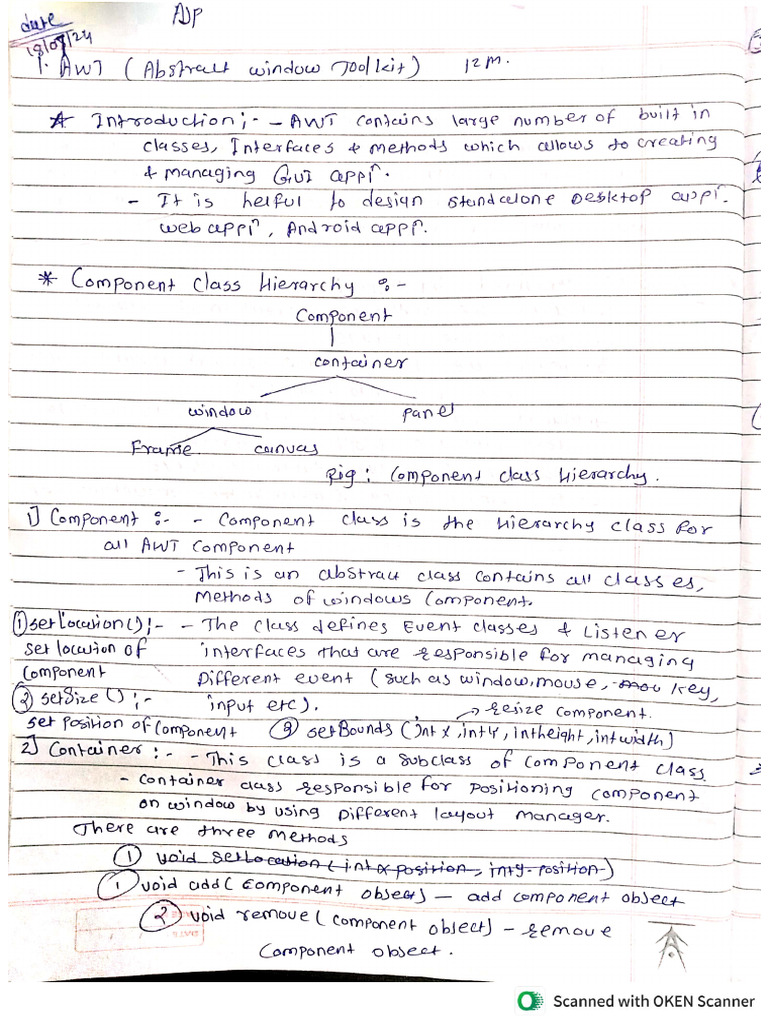 AJP
date
18/07/24
1. AWT (Abstract window Toolkit) 12M.
* Introduction:- - AWT contains large number of built in
classes, Interfaces & methods which allows to creating
& managing GUI appl^n.
- It is helful to design standalone Desktop appl^n.
web appl^n, Android appl^n.
* Component Class Hierarchy :-
Component
container
window panel
Frame canvas
Fig: Component class Hierarchy.
1] Component :- - Component class is the Hierarchy class for
all AWT Component
- This is an abstract class contains all classes,
Methods of windows Component.
① setLocation();- - The class defines Event classes & Listener
set location of interfaces that are responsible for managing
component Different event (such as window, mouse, key,
② setSize();- input etc). → resize component.
set position of component ③ setBounds (int x, int y, int height, int width)
2] Container :- - This class is a subclass of component class
- container class responsible for positioning component
on window by using Different layout manager.
There are three methods
① void setLocation (int x position, int y-position)
① void add( Component object) - add component object
② void remove (component object) - remove
Component object.
Scanned with OKEN Scanner